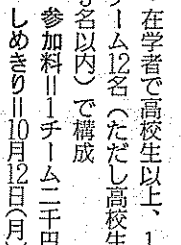 ・在学者で高校生以上、1
ーム12名(ただし高校生
名以内)で構成
参加料=1チーム二千円
しめきり=10月12日(月)